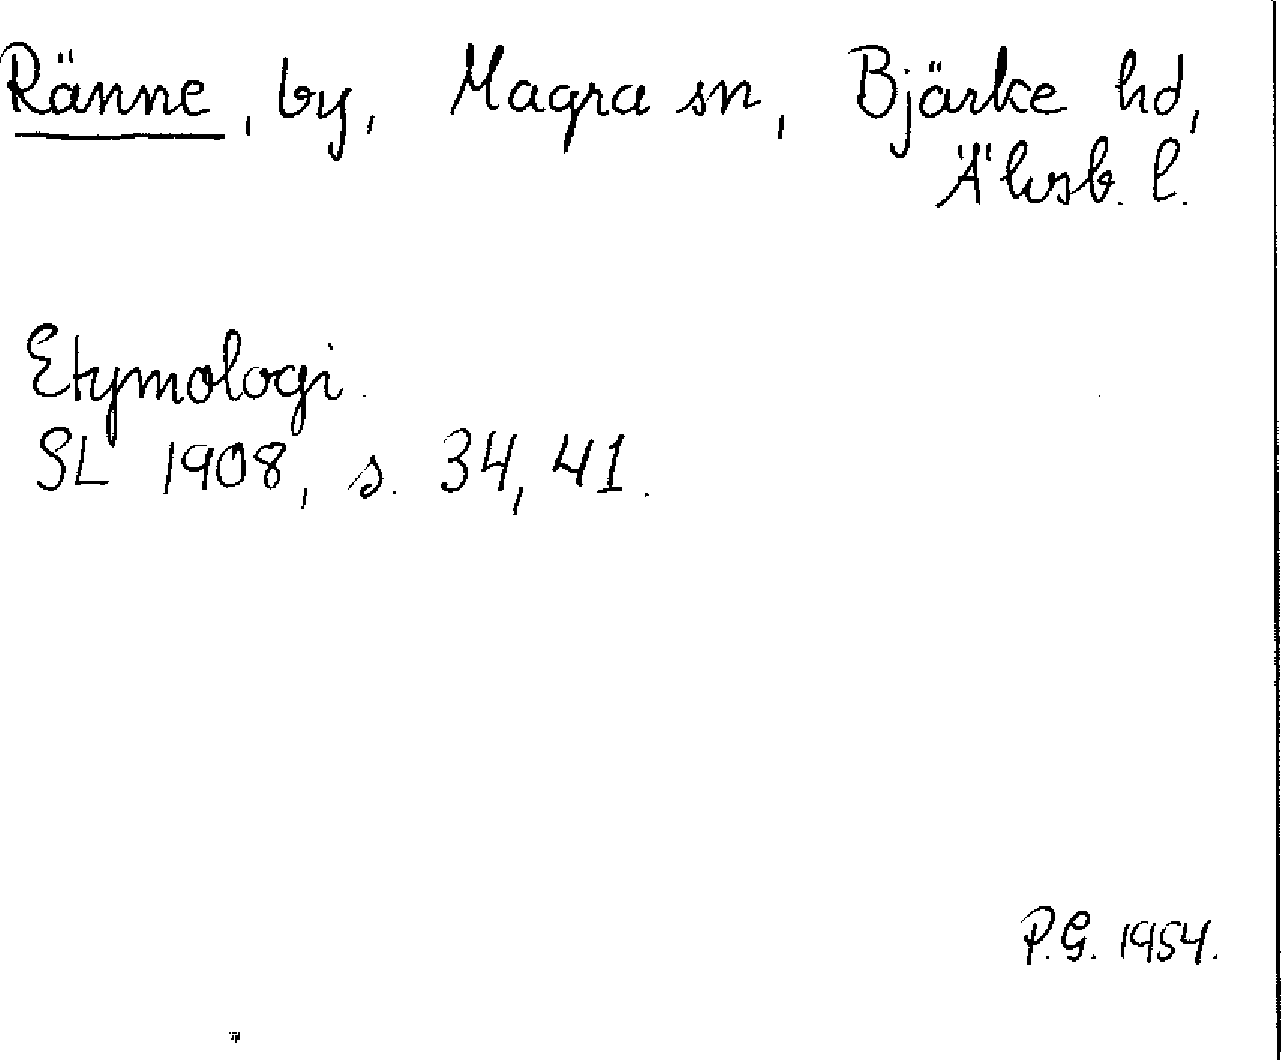 Ränne, by, Magra sn, Bjärke hd,
Älvsb. l.
Etymologi.
SL 1908, s. 34, 41.
P.G. 1954.